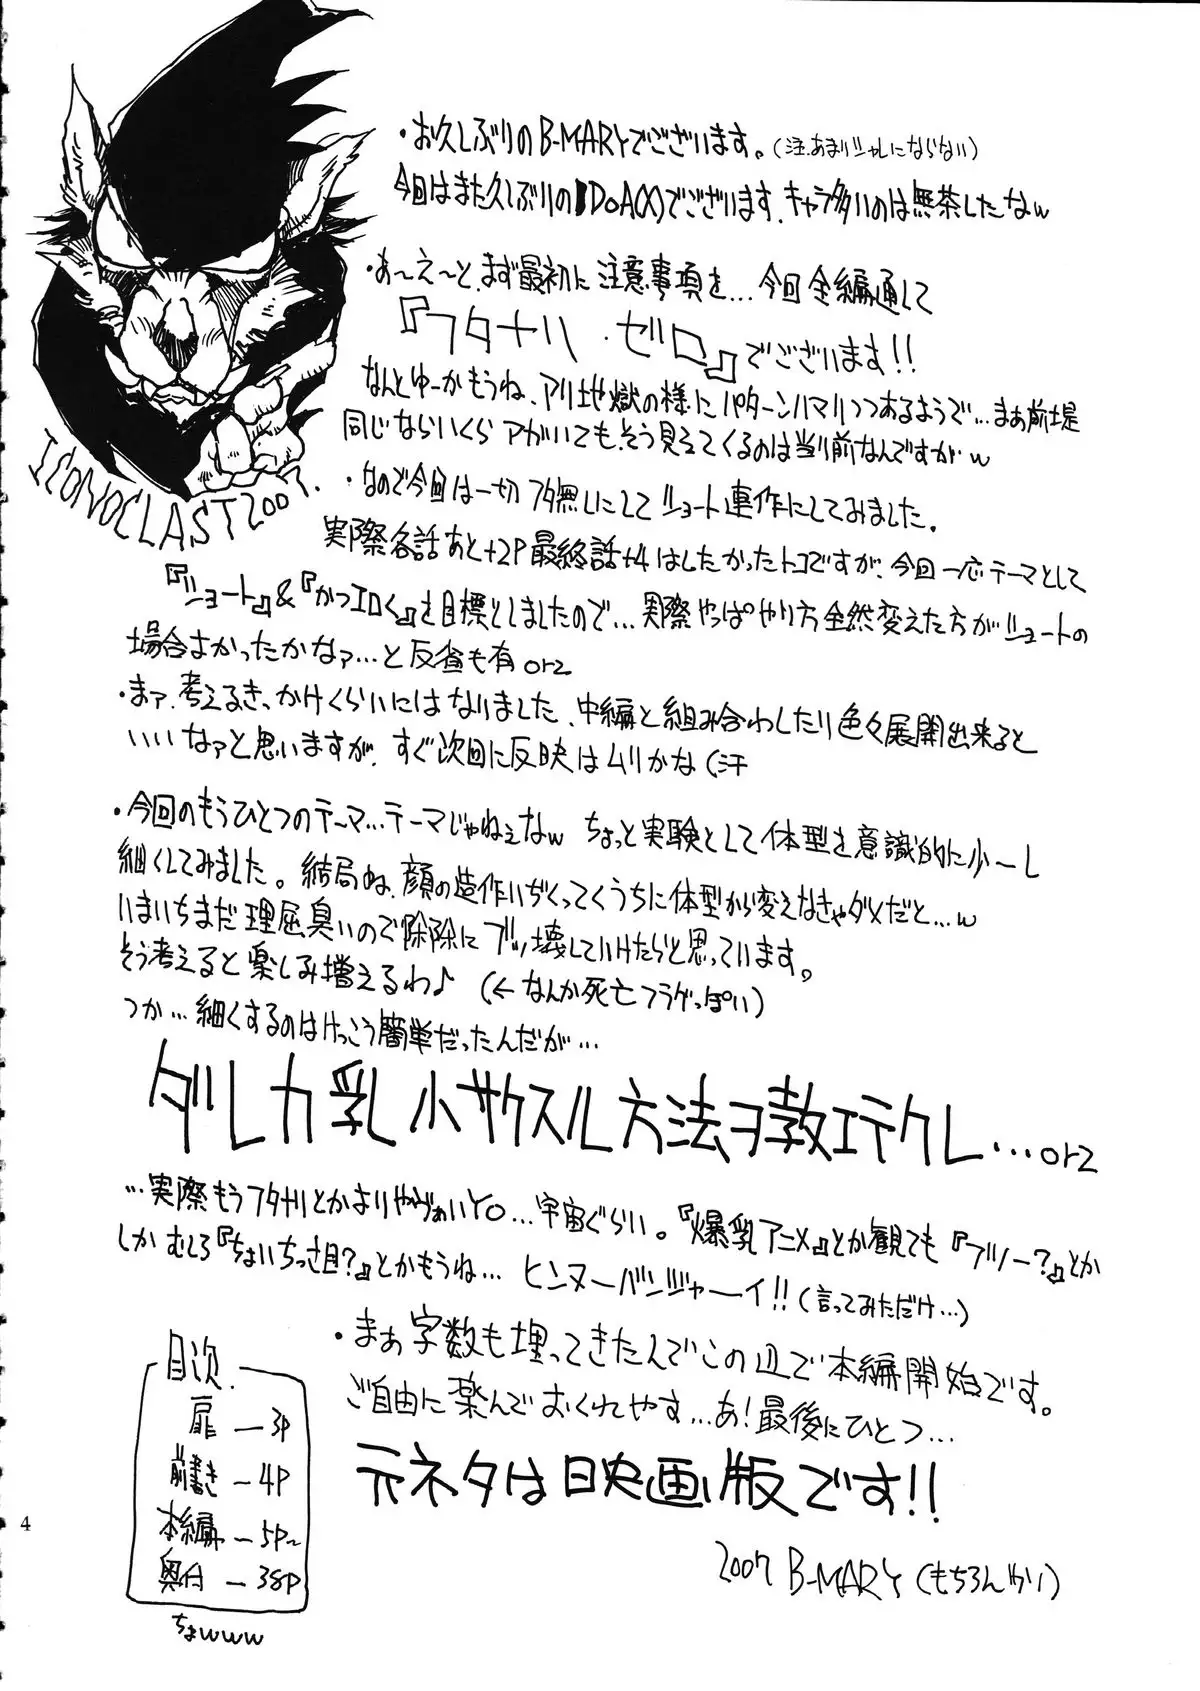 ・お久しぶりのB-MARYでございます。(注.あまりシャレにならない)
今回はまた久しぶりのDoA(X)でございます、キャラ多いのは無茶したなw
・あ〜え〜と、まず最初に注意事項を…今回全編通して
『フタナリ・ゼロ』でございます!!
なんとゆーかもうね、アリ地獄の様にパターンハマりつつあるようで…まあ前堤
同じならいくらアがいてもそう見えてくるのは当り前なんですがw
ICONOCLAST2007.
・なので今回は一切フタ無しにしてショート連作にしてみました。
実際各話あと+2P最終話+4はしたかったトコですが、今回一応テーマとして
『ショート』&『かつエロく』を目標としましたので…実際やっぱやり方全然変えた方がショートの
場合よかったかなァ…と反省も有orz
・まァ、考えるきっかけくらいにはなりました、中編と組み合わしたり色々展開出来ると
いいなァと思いますが、すぐ次回に反映はムリかな(汗
・今回のもうひとつのテーマ…テーマじゃねぇなw ちょっと実験として体型を意識的に小〜し
細くしてみました。結局ね、顔の造作いぢくってくうちに体型から変えなきゃダメだと…w
いまいちまだ理屈臭いので除除にブッ壊していけたらと思っています。
そう考えると楽しみ増えるわ♪ (←なんか死亡フラグっぽい)
つか…細くするのはけっこう簡単だったんだが…
ダレカ乳小サクスル方法ヲ教エテクレ…orz
…実際もうフタナリとかよりやヴぁいYO…宇宙ぐらい。『爆乳アニメ』とか観ても『フツー?』とか
しかむしろ『ちょいちっさ目?』とかもうね… ヒンヌーバンジャーイ!!(言ってみただけ…)
・まぁ字数も埋ってきたんでこの辺で本編開始です。
ご自由に楽んでおくれやす…あ!最後にひとつ…
元ネタは日映画版です!!
2007 B-MARY(もちろんかり)
目次.
扉 — 3P
前書き 〜 4P
本編 — 5P〜
奥付 — 38P
ちょwww
4